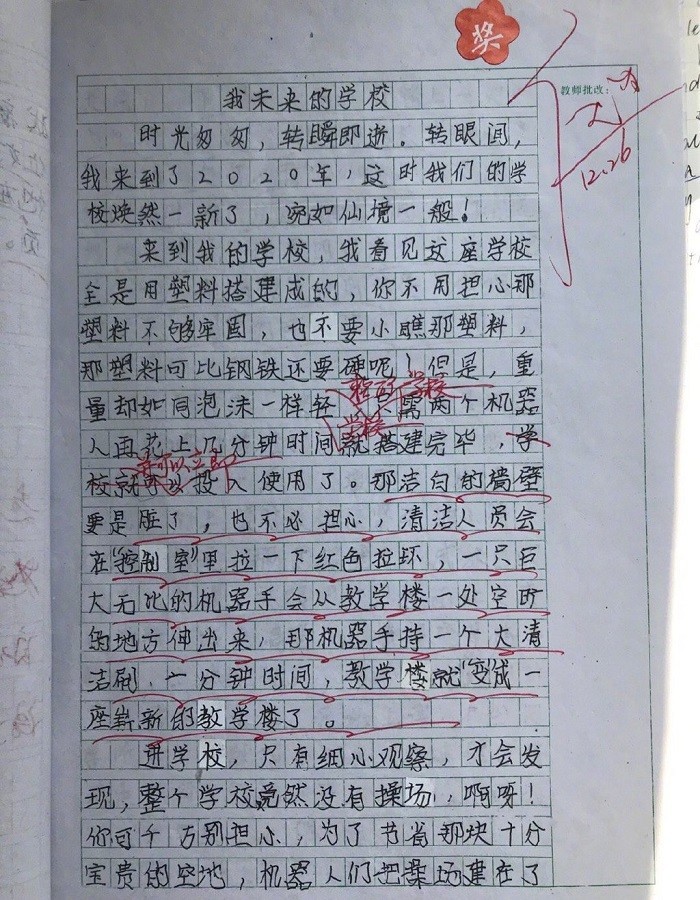 奖
教师批改：
12.26
我未来的学校
时光匆匆，转瞬即逝。转眼间，
我来到了2020年，这时我们的学
校焕然一新了，宛如仙境一般！
来到我的学校，我看见这座学校
全是用塑料搭建成的，你不用担心那
塑料不够牢固，也不要小瞧那塑料，
那塑料可比钢铁还要硬呢！但是，重
量却如同泡沫一样轻，只需两个机器
整所学校
人再花上几分钟时间就搭建完毕，学
学校
校就可以投入使用了。那洁白的墙壁
就可以立即
要是脏了，也不必担心，清洁人员会
在“控制室”里拉一下红色拉环，一只巨
大无比的机器手会从教学楼一处空旷
的地方伸出来，那机器手持一个大清
洁刷，一分钟时间，教学楼就“变”成一
座崭新的教学楼了。
进学校，只有细心观察，才会发
现，整个学校竟然没有操场，啊呀！
你可千万别担心，为了节省那块十分
宝贵的空地，机器人们把操场建在了